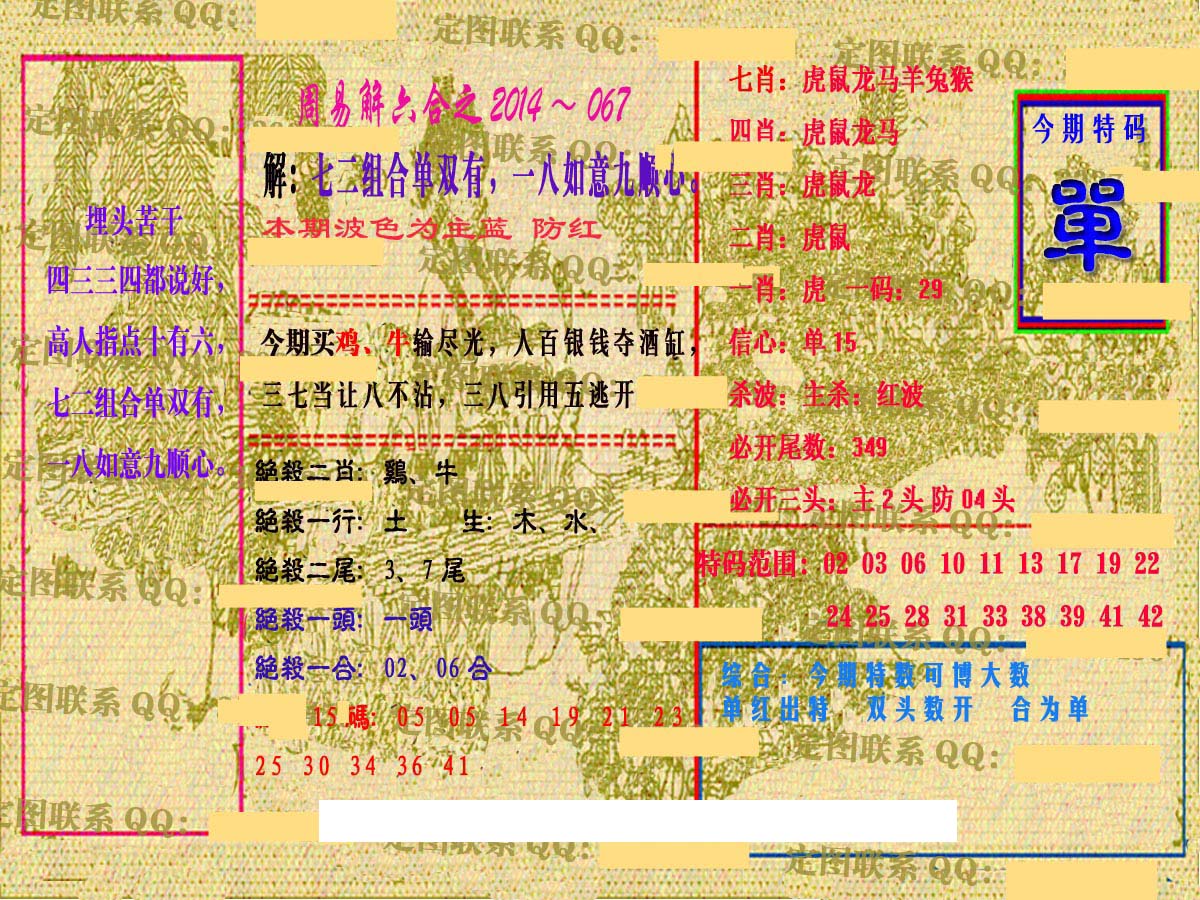 周易解六合之2014～067
解：七二组合单双有，一八如意九顺心。
本期波色为主蓝 防红
埋头苦干
四三三四都说好，
高人指点十有六，
七二组合单双有，
一八如意九顺心。
今期买鸡、牛输尽光，人百银钱夺酒缸，
三七当让八不沾，三八引用五逃开
絕殺二肖：鷄、牛
絕殺一行：土 生：木、水、
絕殺二尾：3、7尾
絕殺一頭：一頭
絕殺一合：02、06合
15碼：05 05 14 19 21 23
25 30 34 36 41
七肖：虎鼠龙马羊兔猴
四肖：虎鼠龙马
三肖：虎鼠龙
二肖：虎鼠
一肖：虎 一码：29
信心：单15
杀波：主杀：红波
必开尾数：349
必开三头：主2头防04头
今期特码
單
特码范围：02 03 06 10 11 13 17 19 22
24 25 28 31 33 38 39 41 42
综合：今期特数可博大数
单红出特 双头数开 合为单
定图联系QQ：
定图联系QQ：
定图联系QQ：
定图联系QQ：
定图联系QQ：
定图联系QQ：
定图联系QQ：
定图联系QQ：
定图联系QQ：
定图联系QQ：
定图联系QQ：